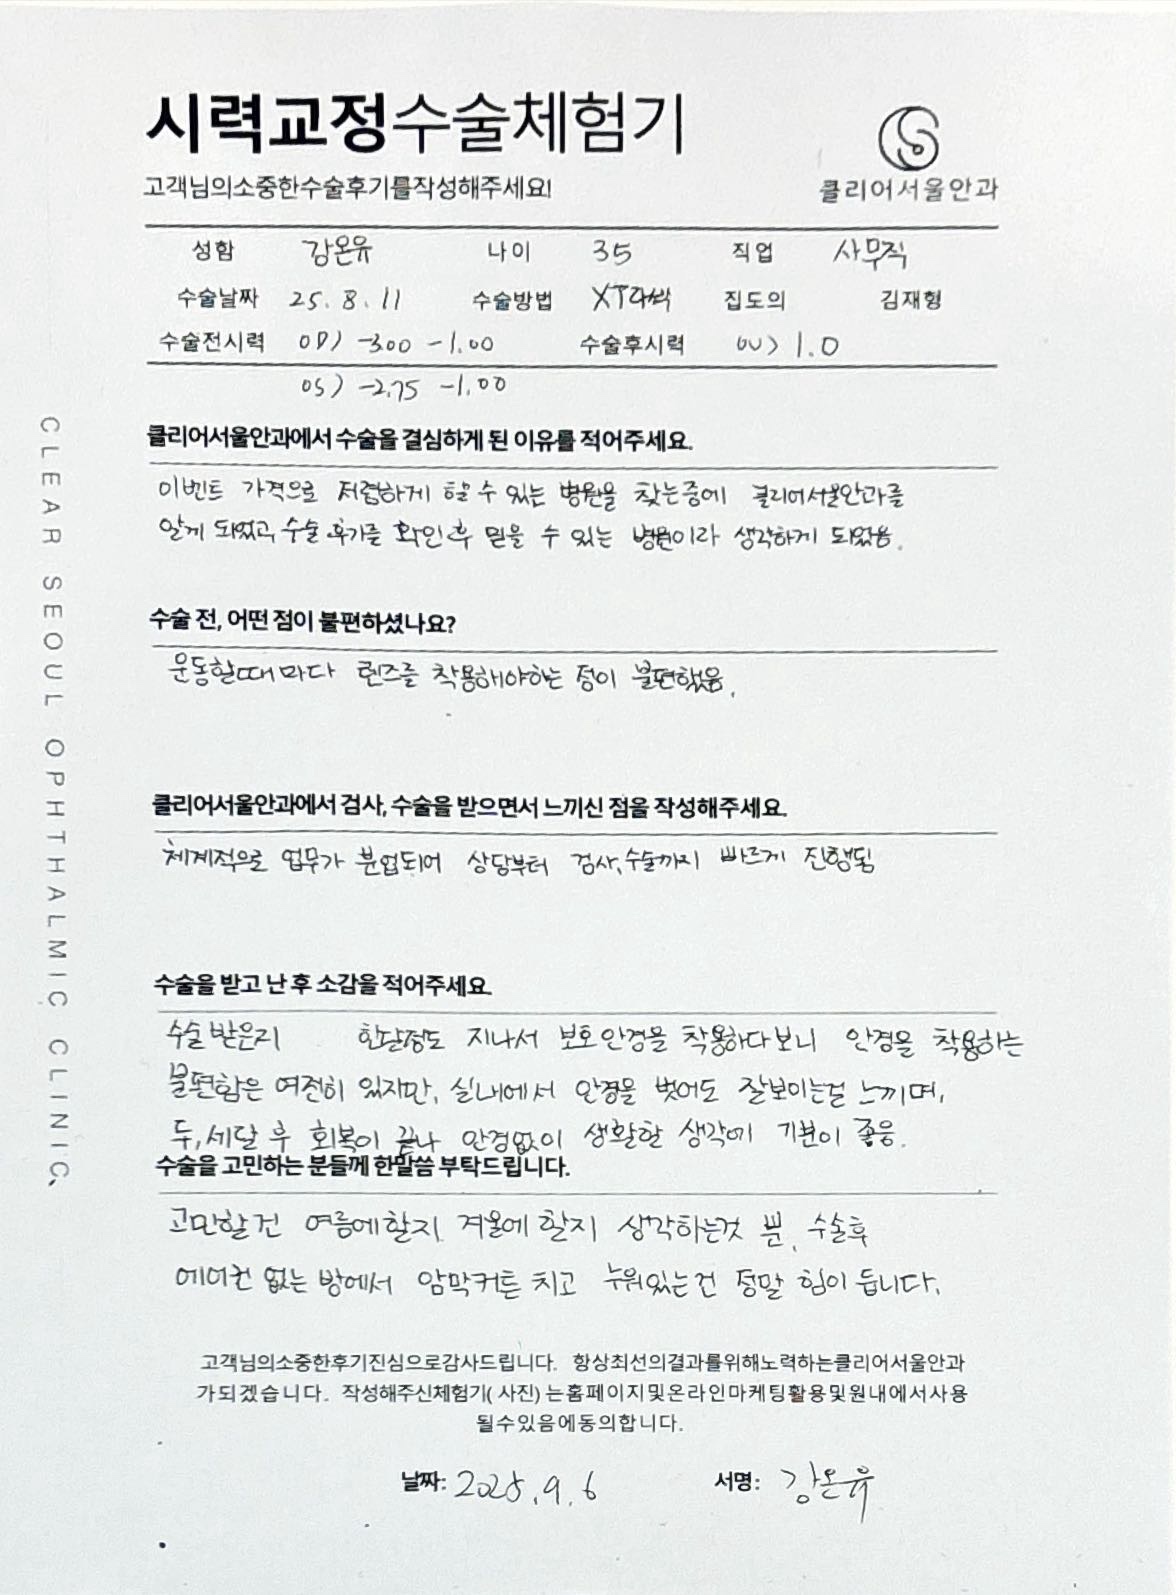 시력교정수술체험기
고객님의소중한수술후기를작성해주세요!
클리어서울안과
성함 강온유 나이 35 직업 사무직
수술날짜 25. 8. 11 수술방법 XT라섹 집도의 김재형
수술전시력 OD) -300 -1.00 수술후시력 OU> 1.0
OS) -2.75 -1.00
CLEAR SEOUL OPHTHALMIC CLINIC
클리어서울안과에서 수술을 결심하게 된 이유를 적어주세요.
이벤트 가격으로 저렴하게 할 수 있는 병원을 찾는중에 클리어서울안과를
알게 되었고, 수술 후기를 확인 후 믿을 수 있는 병원이라 생각하게 되었음.
수술 전, 어떤 점이 불편하셨나요?
운동할때마다 렌즈를 착용해야하는 점이 불편했음.
클리어서울안과에서 검사, 수술을 받으면서 느끼신 점을 작성해주세요.
체계적으로 업무가 분업되어 상담부터 검사, 수술까지 빠르게 진행됨
수술을 받고 난 후 소감을 적어주세요.
수술 받은지 한달정도 지나서 보호안경을 착용하다보니 안경을 착용하는
불편함은 여전히 있지만, 실내에서 안경을 벗어도 잘보이는걸 느끼며,
두, 세달 후 회복이 끝나 안경없이 생활할 생각에 기분이 좋음.
수술을 고민하는 분들께 한말씀 부탁드립니다.
고민할건 여름에할지 겨울에 할지 생각하는것 뿐, 수술후
에어컨 없는 방에서 암막커튼 치고 누워있는건 정말 힘이 듭니다.
고객님의소중한후기진심으로감사드립니다. 항상최선의결과를위해노력하는클리어서울안과
가되겠습니다. 작성해주신체험기( 사진) 는홈페이지및온라인마케팅활용및원내에서사용
될수있음에동의합니다.
날짜: 2025. 9. 6 서명: 강온유